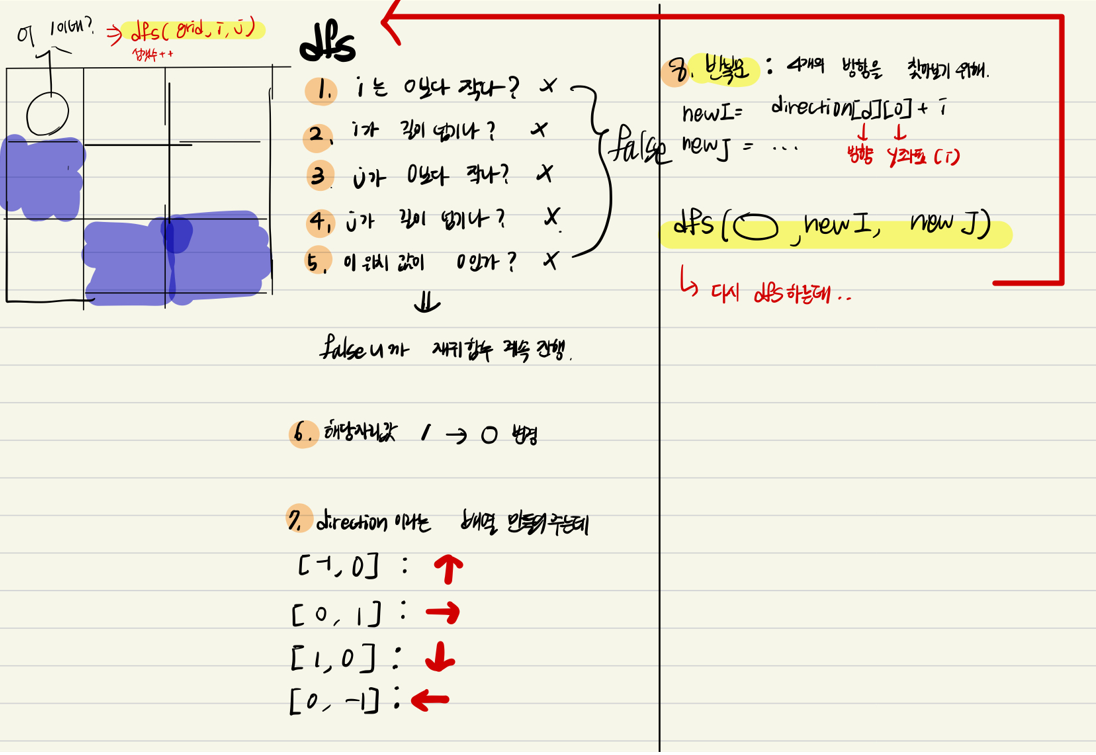 어 1이네? ⇒ dfs(grid,i,j)
섬개수++
dfs
1. i는 0보다 작나? X
2. i가 길이 넘기나? X
3. j가 0보다 작나? X
4. j가 길이 넘기나? X
5. 이 위치 값이 0인가? X
false
⇓
false니까 재귀함수 계속 진행.
6. 해당자리값 1 → 0 변경
7. direction 이라는 배열 만들어주는데
[-1, 0] : ↑
[0, 1] : →
[1, 0] : ↓
[0, -1] : ←
8. 반복문 : 4개의 방향을 찾아보기 위해.
newI = direction[d][0] + i
↓ ↓
방향 y좌표 (i)
newJ = ...
dfs( , newI, newJ)
↳ 다시 dfs 하는데..